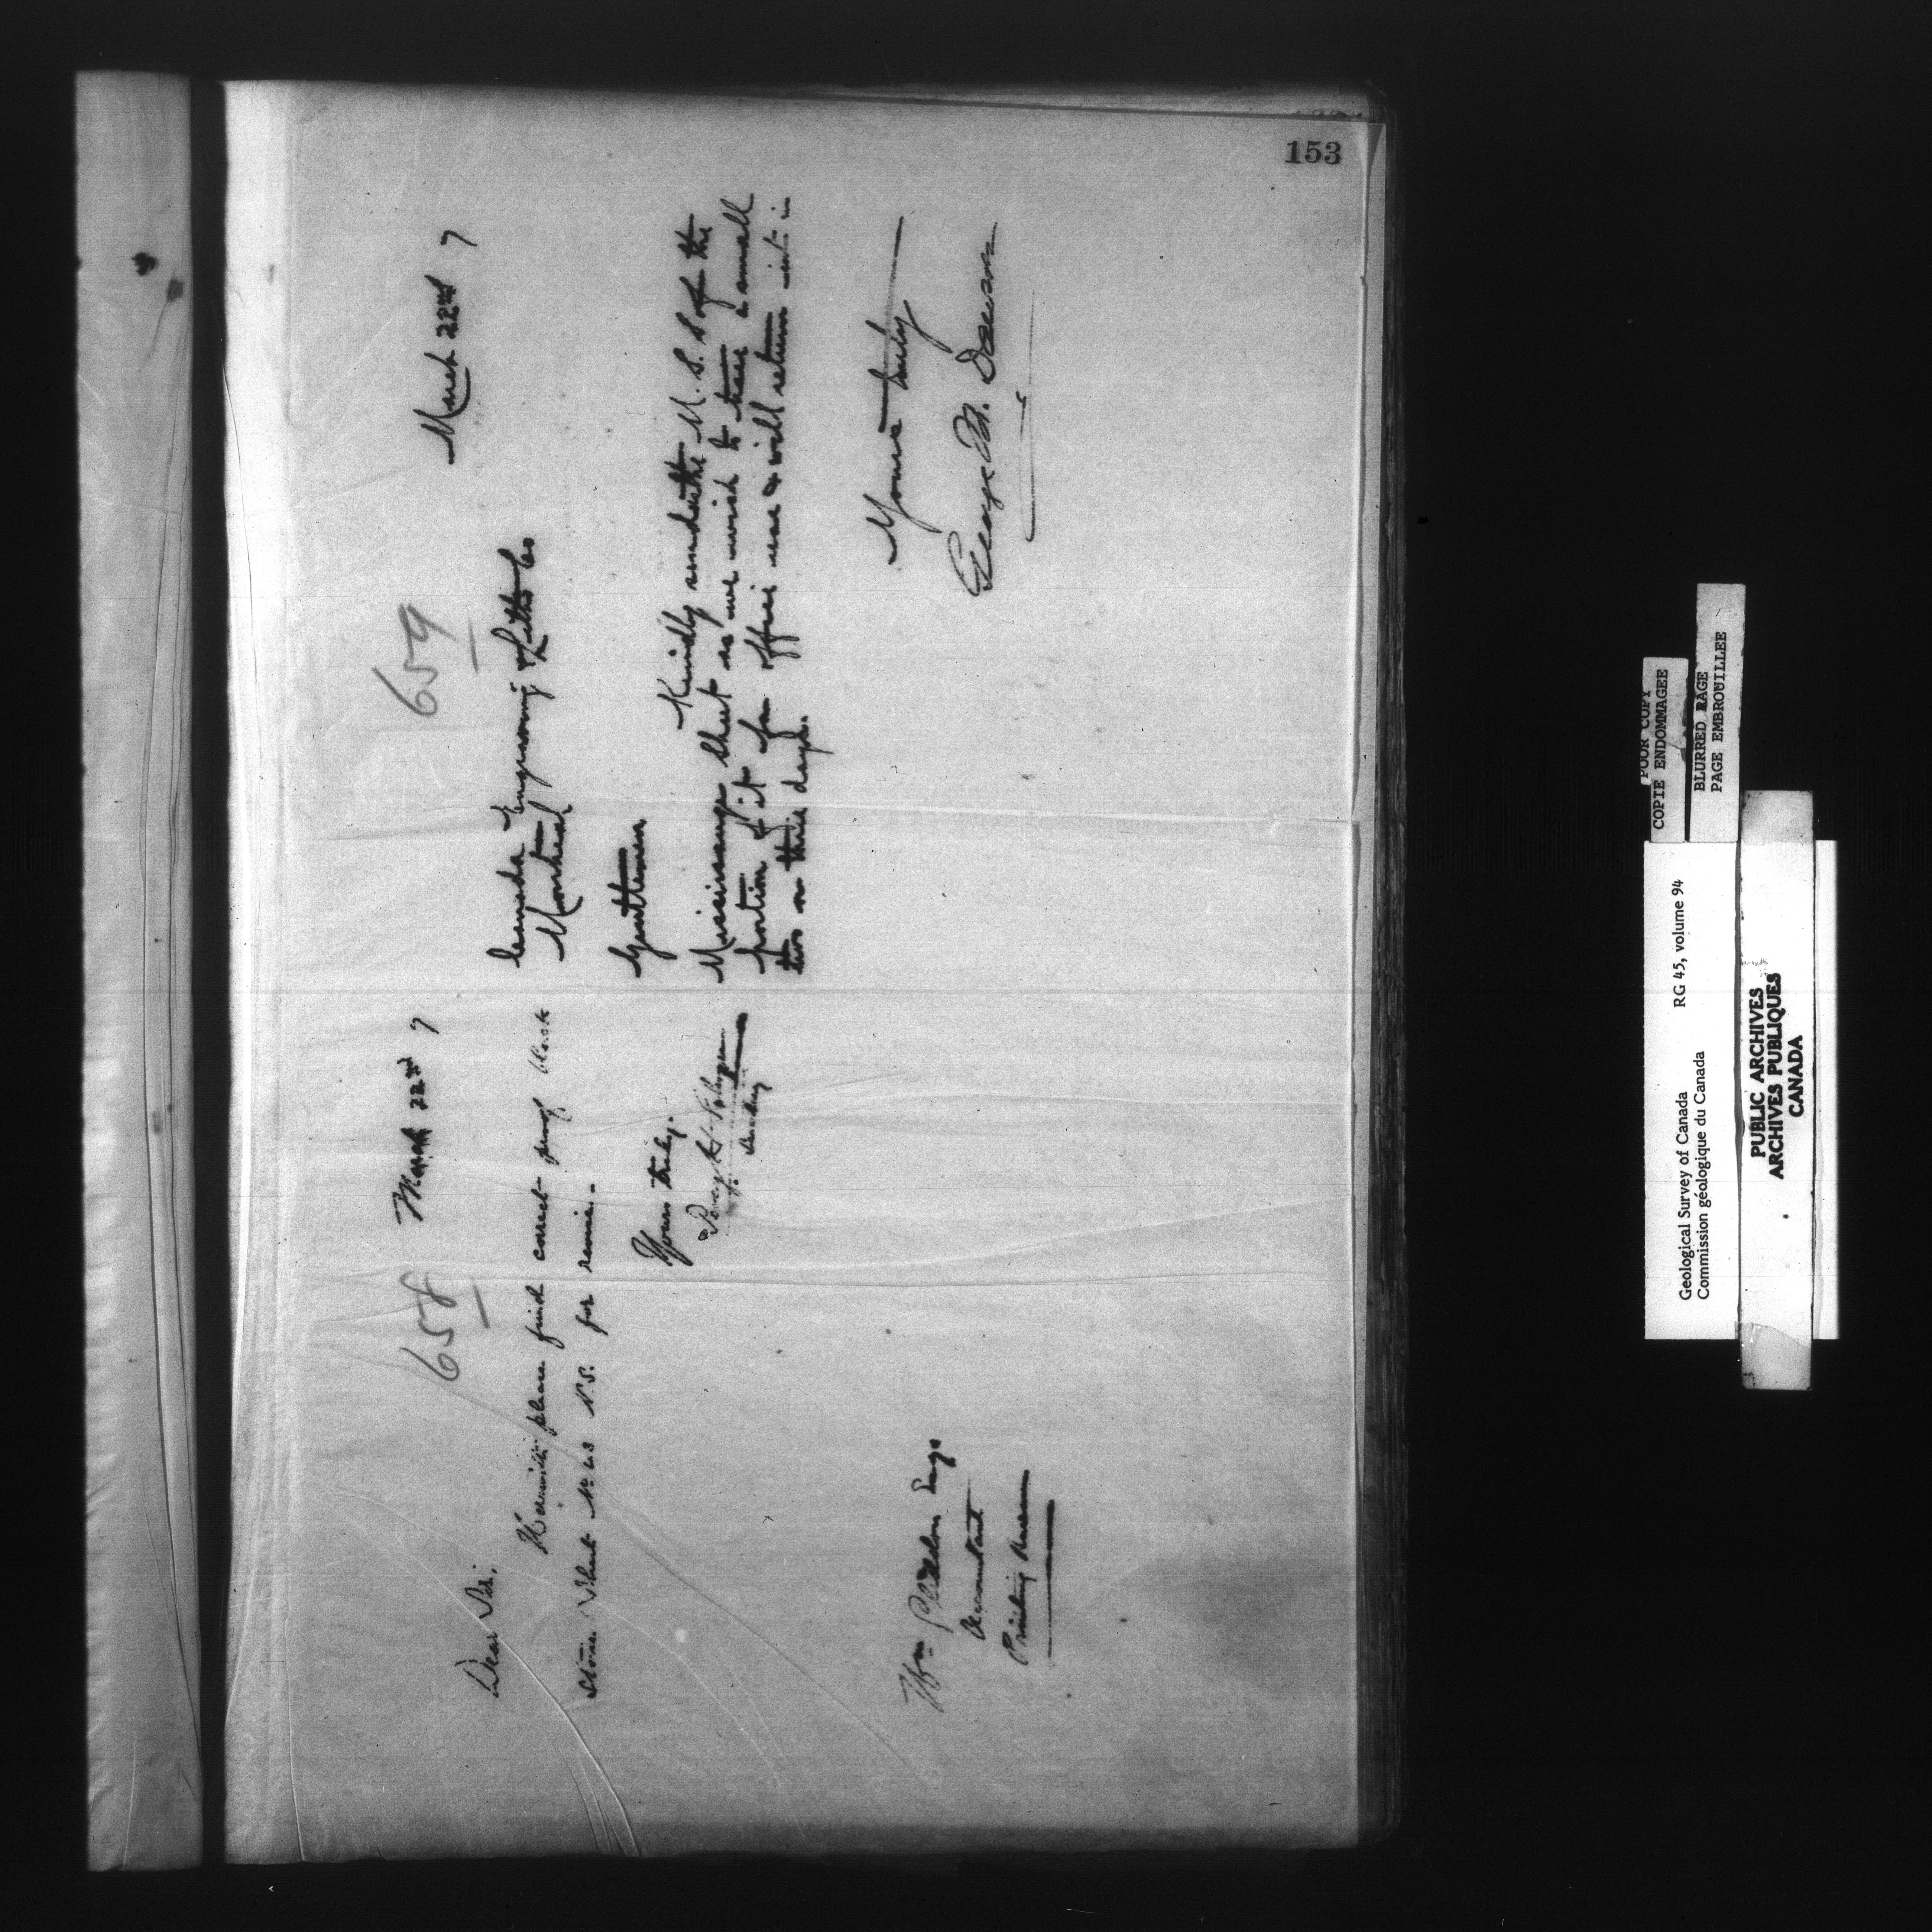 153
658
March 22nd 7
Dear Sir,
Herewith please find correct proof black
stone. Sheet No 43 N.S. for revise.
Yours truly.
Wm Gliddon Esqr
Accountant
Printing Bureau
659
March 22nd 7
Canada Engraving & Litho Co
Montreal
Gentlemen
Kindly send us the M.S.S of the
Mississauga sheet as we wish to trace a small
portion of it for office use & will return it in
two or three days.
Yours truly
George M. Dawson
POOR COPY
COPIE ENDOMMAGEE
BLURRED PAGE
PAGE EMBROUILLEE
Geological Survey of Canada RG 45, volume 94
Commission géologique du Canada
PUBLIC ARCHIVES
ARCHIVES PUBLIQUES
CANADA